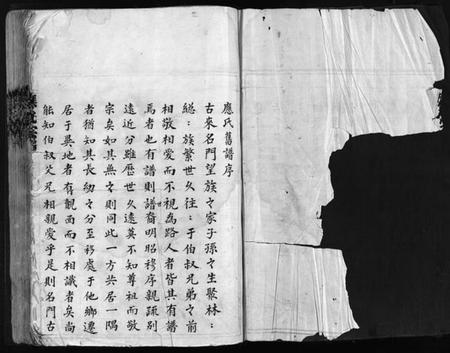 應氏舊譜序
古來名門望族之家子孫之生聚林:
總:族繁世久往:于伯叔兄弟之前
相敬相愛而不視為路人者皆其有譜
焉者也有譜則譜裔明昭穆序親疎別
遠近分雖歷世久遠莫不知尊祖而敬
宗矣如其無之則同此一方共居一隅
者猶知其長幼之分至移處于他鄉遷
居于異地者有覿面而不相識者矣尚
能知伯叔父兄相親愛乎是則名門古